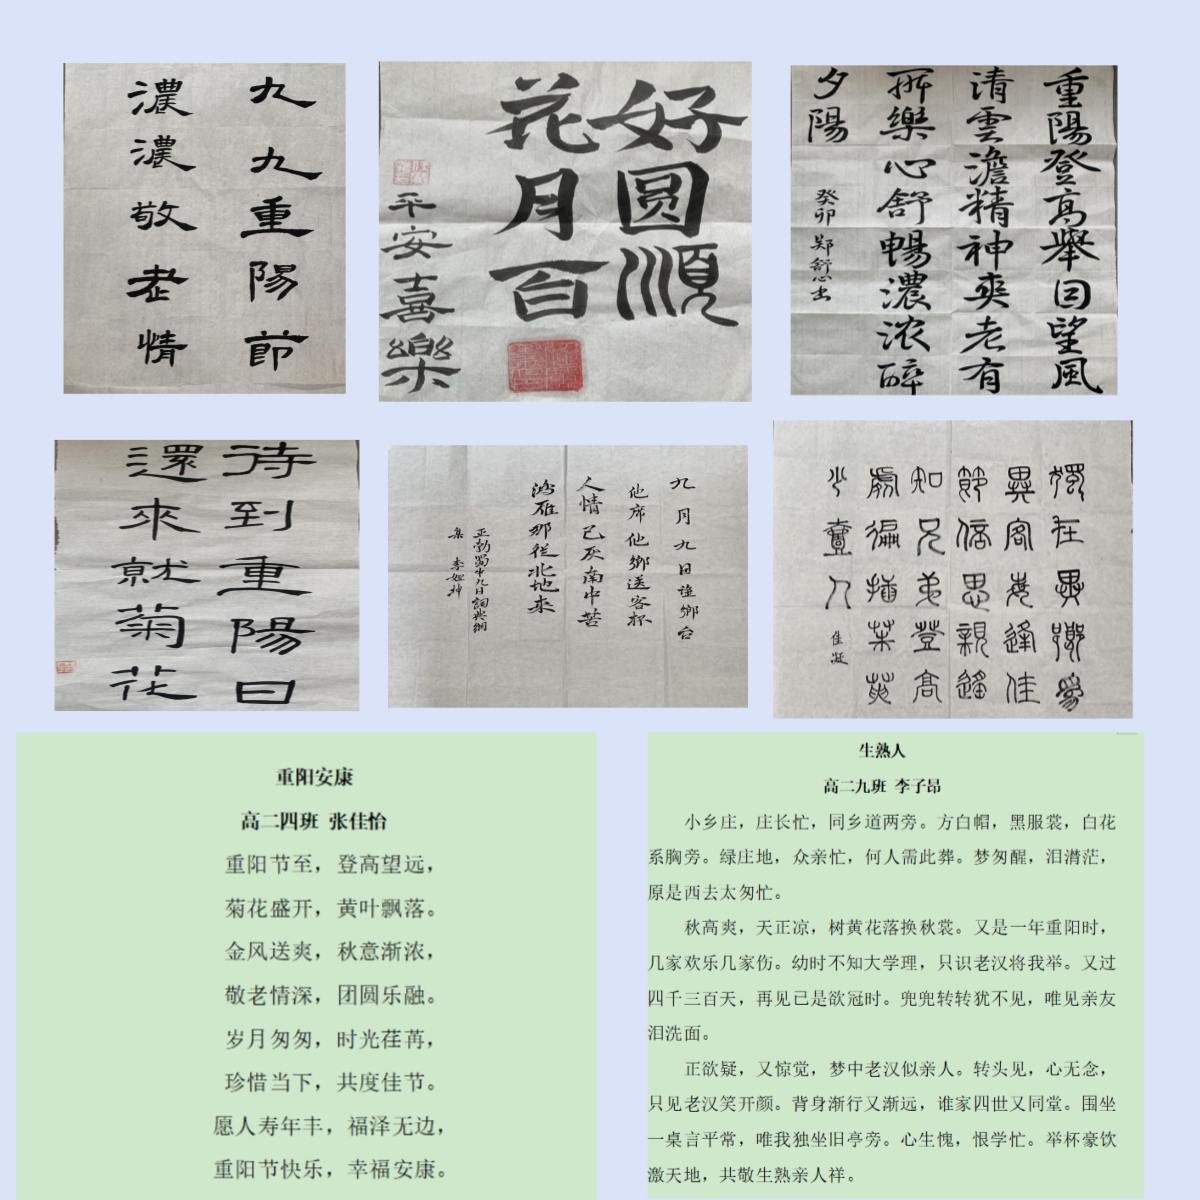 九九重陽節
濃濃敬老情
好圆順
花月百
平安喜樂
重陽登高舉目望風
清雲澹精神爽老有
所樂心舒暢濃浓醉
夕陽
癸卯 郑舒心书
待到重陽日
還來就菊花
九月九日望鄉台
他席他鄉送客杯
人情已厌南中苦
鸿雁那從北地来
獨在異鄉為
異客每逢佳
節倍思親遥
知兄弟登高
處徧插茱萸
少壹人
佳凝
重阳安康
高二四班 张佳怡
重阳节至，登高望远，
菊花盛开，黄叶飘落。
金风送爽，秋意渐浓，
敬老情深，团圆乐融。
岁月匆匆，时光荏苒，
珍惜当下，共度佳节。
愿人寿年丰，福泽无边，
重阳节快乐，幸福安康。
生熟人
高二九班 李子昂
小乡庄，庄长忙，同乡道两旁。方白帽，黑服裳，白花
系胸旁。绿庄地，众亲忙，何人需此葬。梦匆醒，泪潸茫，
原是西去太匆忙。
秋高爽，天正凉，树黄花落换秋裳。又是一年重阳时，
几家欢乐几家伤。幼时不知大学理，只识老汉将我举。又过
四千三百天，再见已是欲冠时。兜兜转转犹不见，唯见亲友
泪洗面。
正欲疑，又惊觉，梦中老汉似亲人。转头见，心无念，
只见老汉笑开颜。背身渐行又渐远，谁家四世又同堂。围坐
一桌言平常，唯我独坐旧亭旁。心生愧，恨学忙。举杯豪饮
激天地，共敬生熟亲人祥。